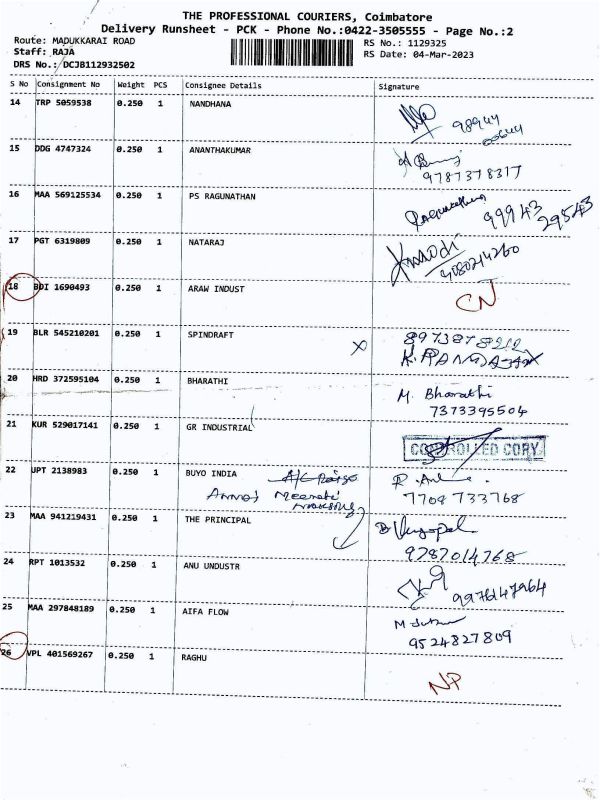 THE PROFESSIONAL COURIERS, Coimbatore
Delivery Runsheet - PCK - Phone No.:0422-3505555 - Page No.:2
Route: MADUKKARAI ROAD
RS No.: 1129325
Staff: RAJA
RS Date: 04-Mar-2023
DRS No.: DCJB112932502
S No Consignment No Weight PCS Consignee Details Signature
14 TRP 5059538 0.250 1 NANDHANA
98944
15 DDG 4747324 0.250 1 ANANTHAKUMAR
9787378317
16 MAA 569125534 0.250 1 PS RAGUNATHAN
99943
29543
17 PGT 6319809 0.250 1 NATARAJ
18 BDI 1690493 0.250 1 ARAW INDUST
CN
19 BLR 545210201 0.250 1 SPINDRAFT
X
20 HRD 372595104 0.250 1 BHARATHI
M. Bharathi
7373395504
21 KUR 529017141 0.250 1 GR INDUSTRIAL
CONTROLLED COPY
22 JPT 2138983 0.250 1 BUYO INDIA
7709 733768
23 MAA 941219431 0.250 1 THE PRINCIPAL
9787014768
24 RPT 1013532 0.250 1 ANU UNDUSTR
25 MAA 297848189 0.250 1 AIFA FLOW
9524827809
26 VPL 401569267 0.250 1 RAGHU
NP